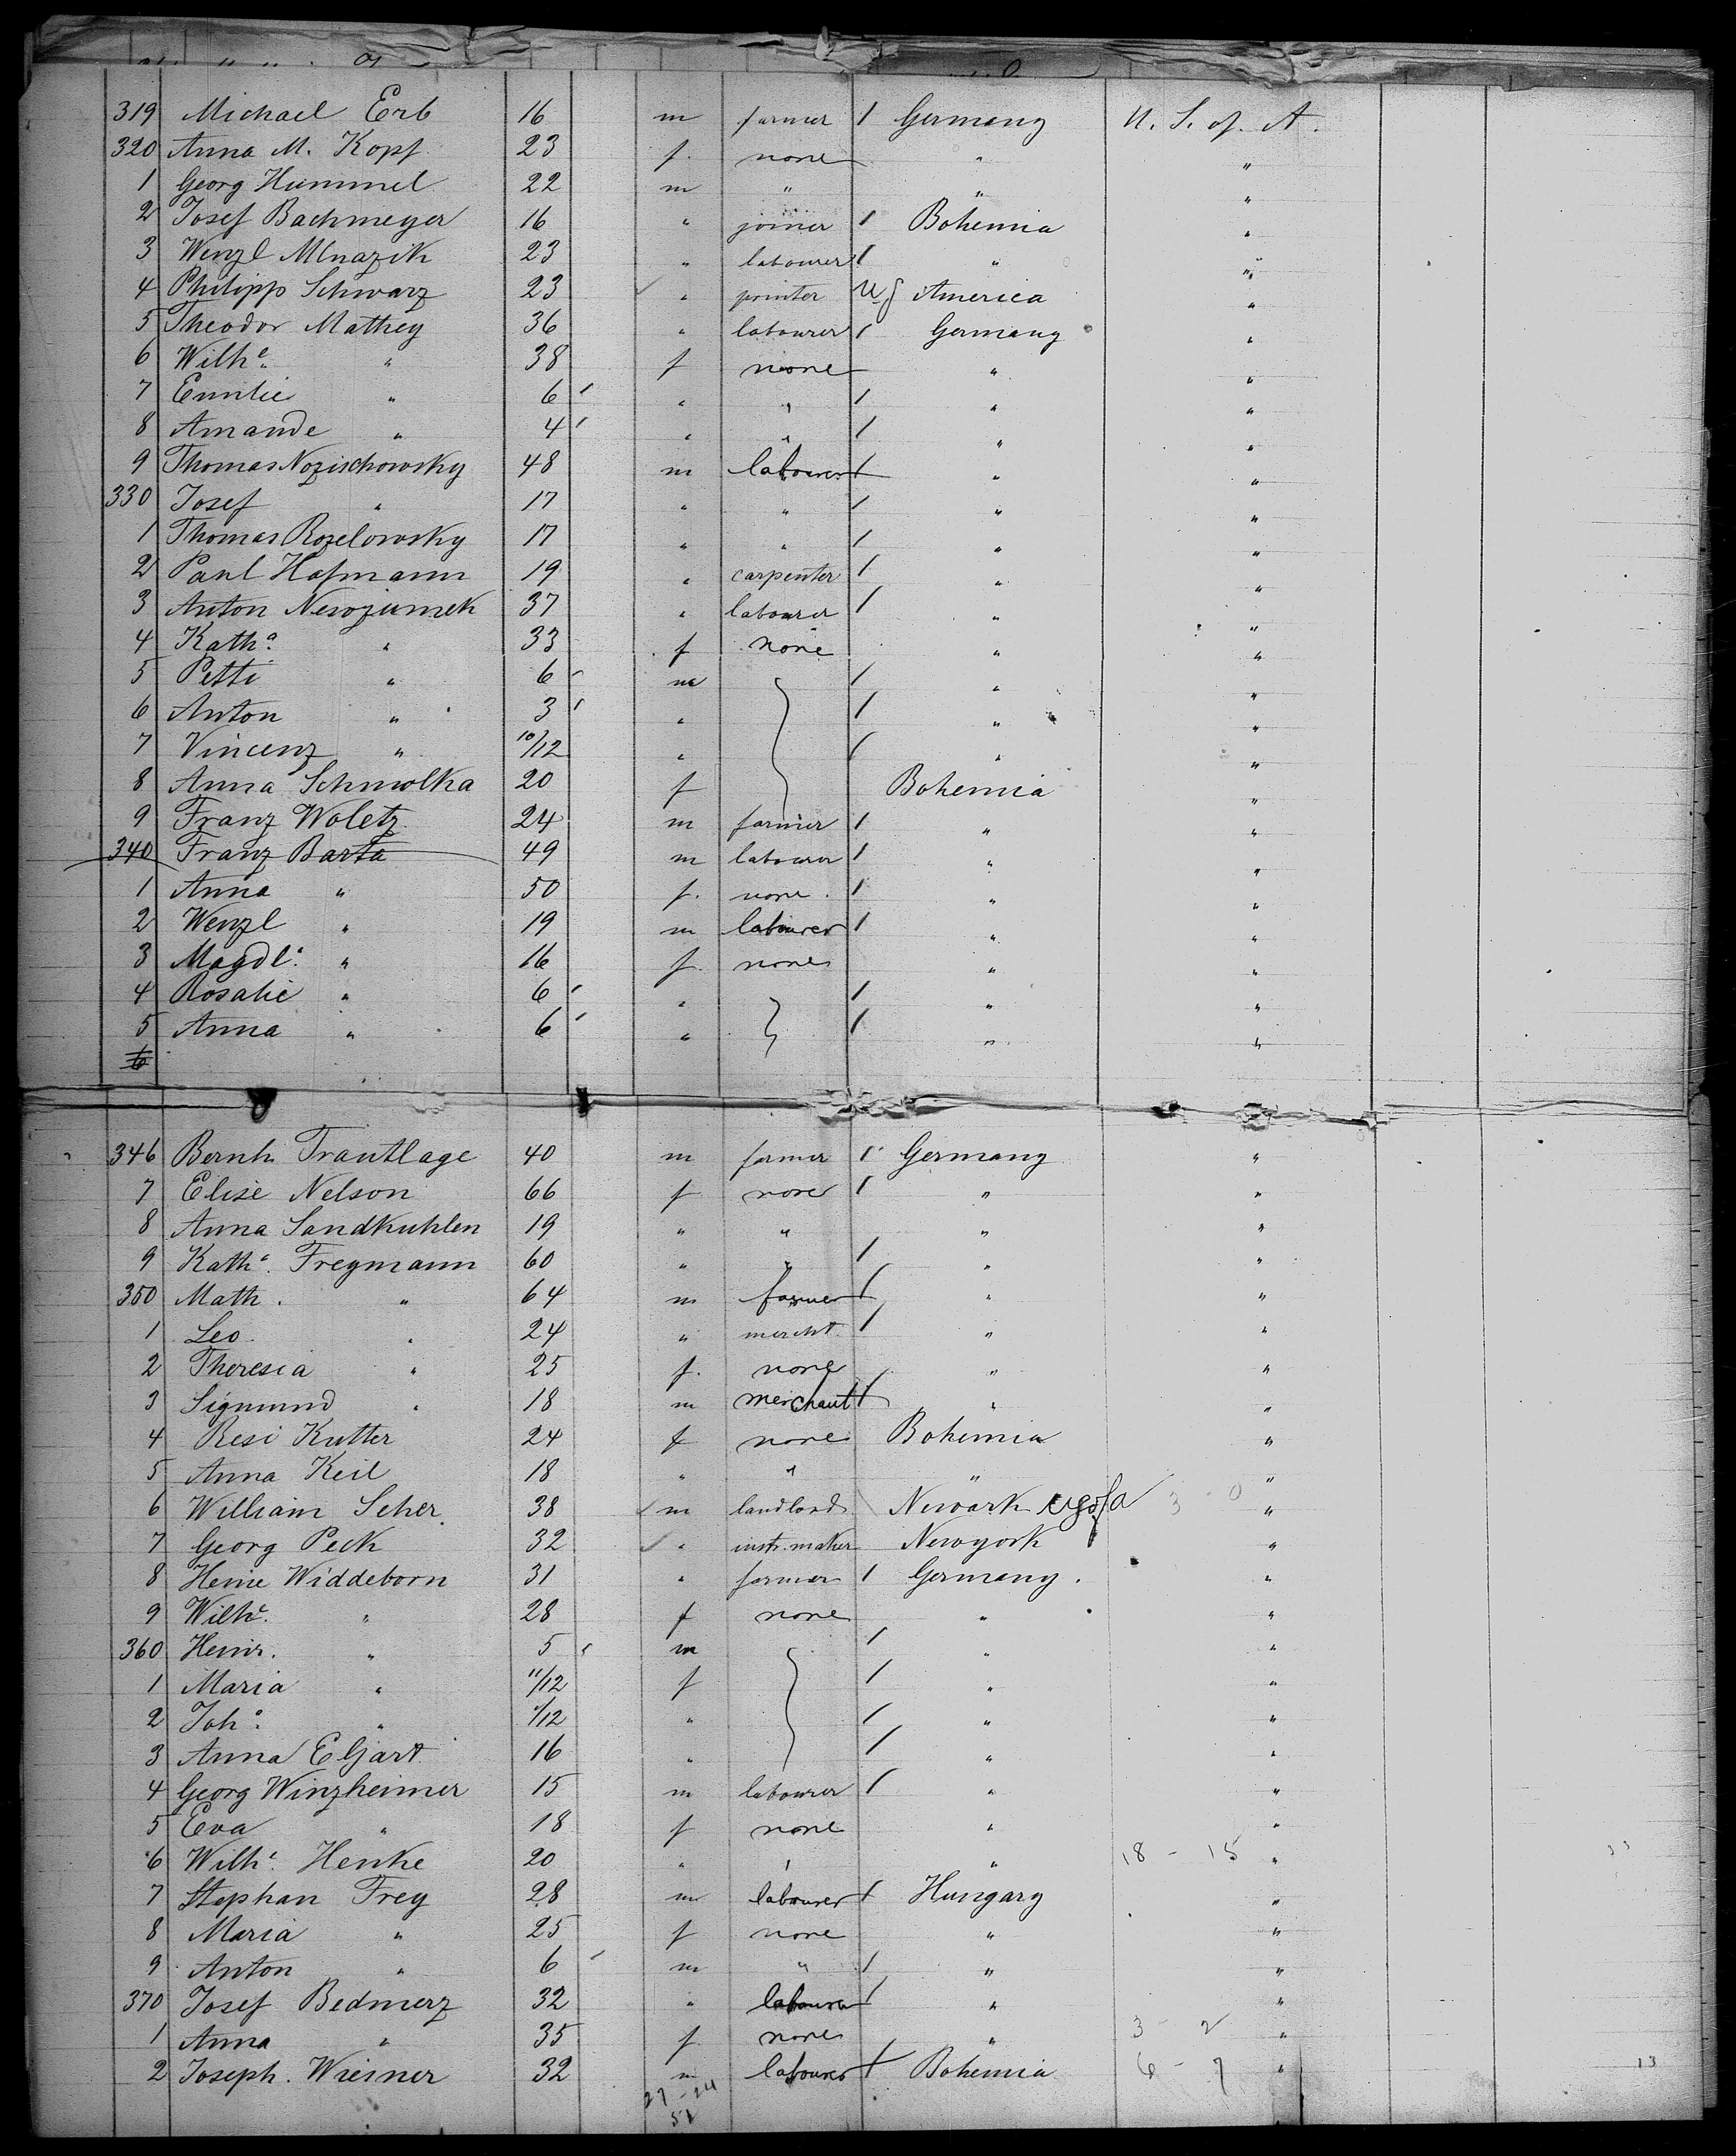 319 Michael Erb 16 m farmer / Germany U. S. of. A.
320 Anna M. Kopf 23 f. none " "
1 Georg Hummel 22 m " " "
2 Josef Bachmeyer 16 " joiner / Bohemia "
3 Wenzl Mlnazik 23 " labourer / " "
4 Philipp Schwarz 23 ✓ " printer US America "
5 Theodor Mathey 36 " labourer / Germany "
6 Wilhe. " 38 f none " "
7 Emilie " 6 / " " / " "
8 Amande " 4 / " " / " "
9 Thomas Nozischowsky 48 m labourer / " "
330 Josef " 17 " " / " "
1 Thomas Rozelowsky 17 " " / " "
2 Paul Hofmann 19 " carpenter / " "
3 Anton Newozumek 37 " labourer / " "
4 Katha. " 33 f none " "
5 Petti " 6 / m / " "
6 Anton " 3 / " / " "
7 Vincenz " 10/12 " / " "
8 Anna Schmolka 20 f Bohemia "
9 Franz Woletz 24 m farmer / " "
340 Franz Barta 49 m labourer / " "
1 Anna " 50 f. none / " "
2 Wenzl " 19 m labourer / " "
3 Magdl. " 16 f. none " "
4 Rosalie " 6 / " / " "
5 Anna " 6 / " / " "
6
346 Bernh. Trautlage 40 m farmer / Germany "
7 Elise Nelson 66 f none / " "
8 Anna Sandkuhlen 19 " " " "
9 Katha. Fregmann 60 " " / " "
350 Math. " 64 m farmer / " "
1 Leo " 24 " mercht. / " "
2 Theresia " 25 f. none " "
3 Sigmund " 18 m merchant / " "
4 Resi Kutter 24 f none Bohemia "
5 Anna Keil 18 " " " "
6 William Scher 38 ✓ m landlord Newark USofA 3 - 0 "
7 Georg Peck 32 ✓ " instr. maker Newyork "
8 Heine Widdeborn 31 " farmer / Germany. "
9 Wilhe. " 28 f none " "
360 Heinr. " 5 / m / " "
1 Maria " 11/12 f / " "
2 Joha. " 1/12 " / " "
3 Anna Eljart 16 " / " "
4 Georg Winzheimer 15 m labourer / " "
5 Eva " 18 f none " "
6 Wilhe. Henke 20 " " " 18 - 15 "
7 Stephan Frey 28 m labourer / Hungary "
8 Maria " 25 f none " "
9 Anton " 6 / m " / " "
370 Josef Bedmerz 32 " labourer / " "
1 Anna " 35 f. none " 3 - 2 "
2 Joseph. Wiesner 32 m labourer / Bohemia 6 - 7 " 13
27 - 24
51